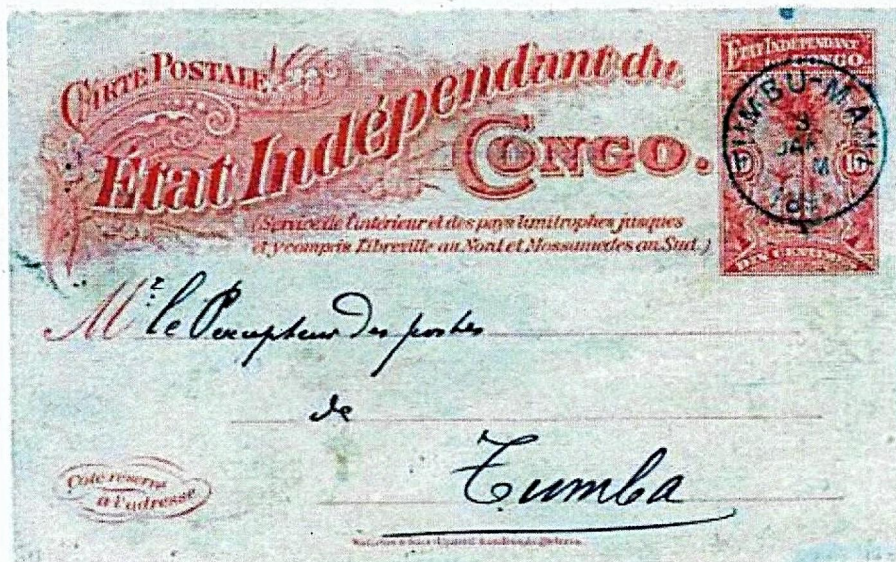 CARTE POSTALE
État Indépendant du
CONGO.
(Service de l'intérieur et des pays limitrophes jusques
et y compris Libreville au Nord et Mossamedes au Sud.)
ETAT INDEPENDANT
DU CONGO
3
JAN
DIX CENTIMES
Mr le Percepteur des postes
de
Tumba
Côté réservé
à l'adresse